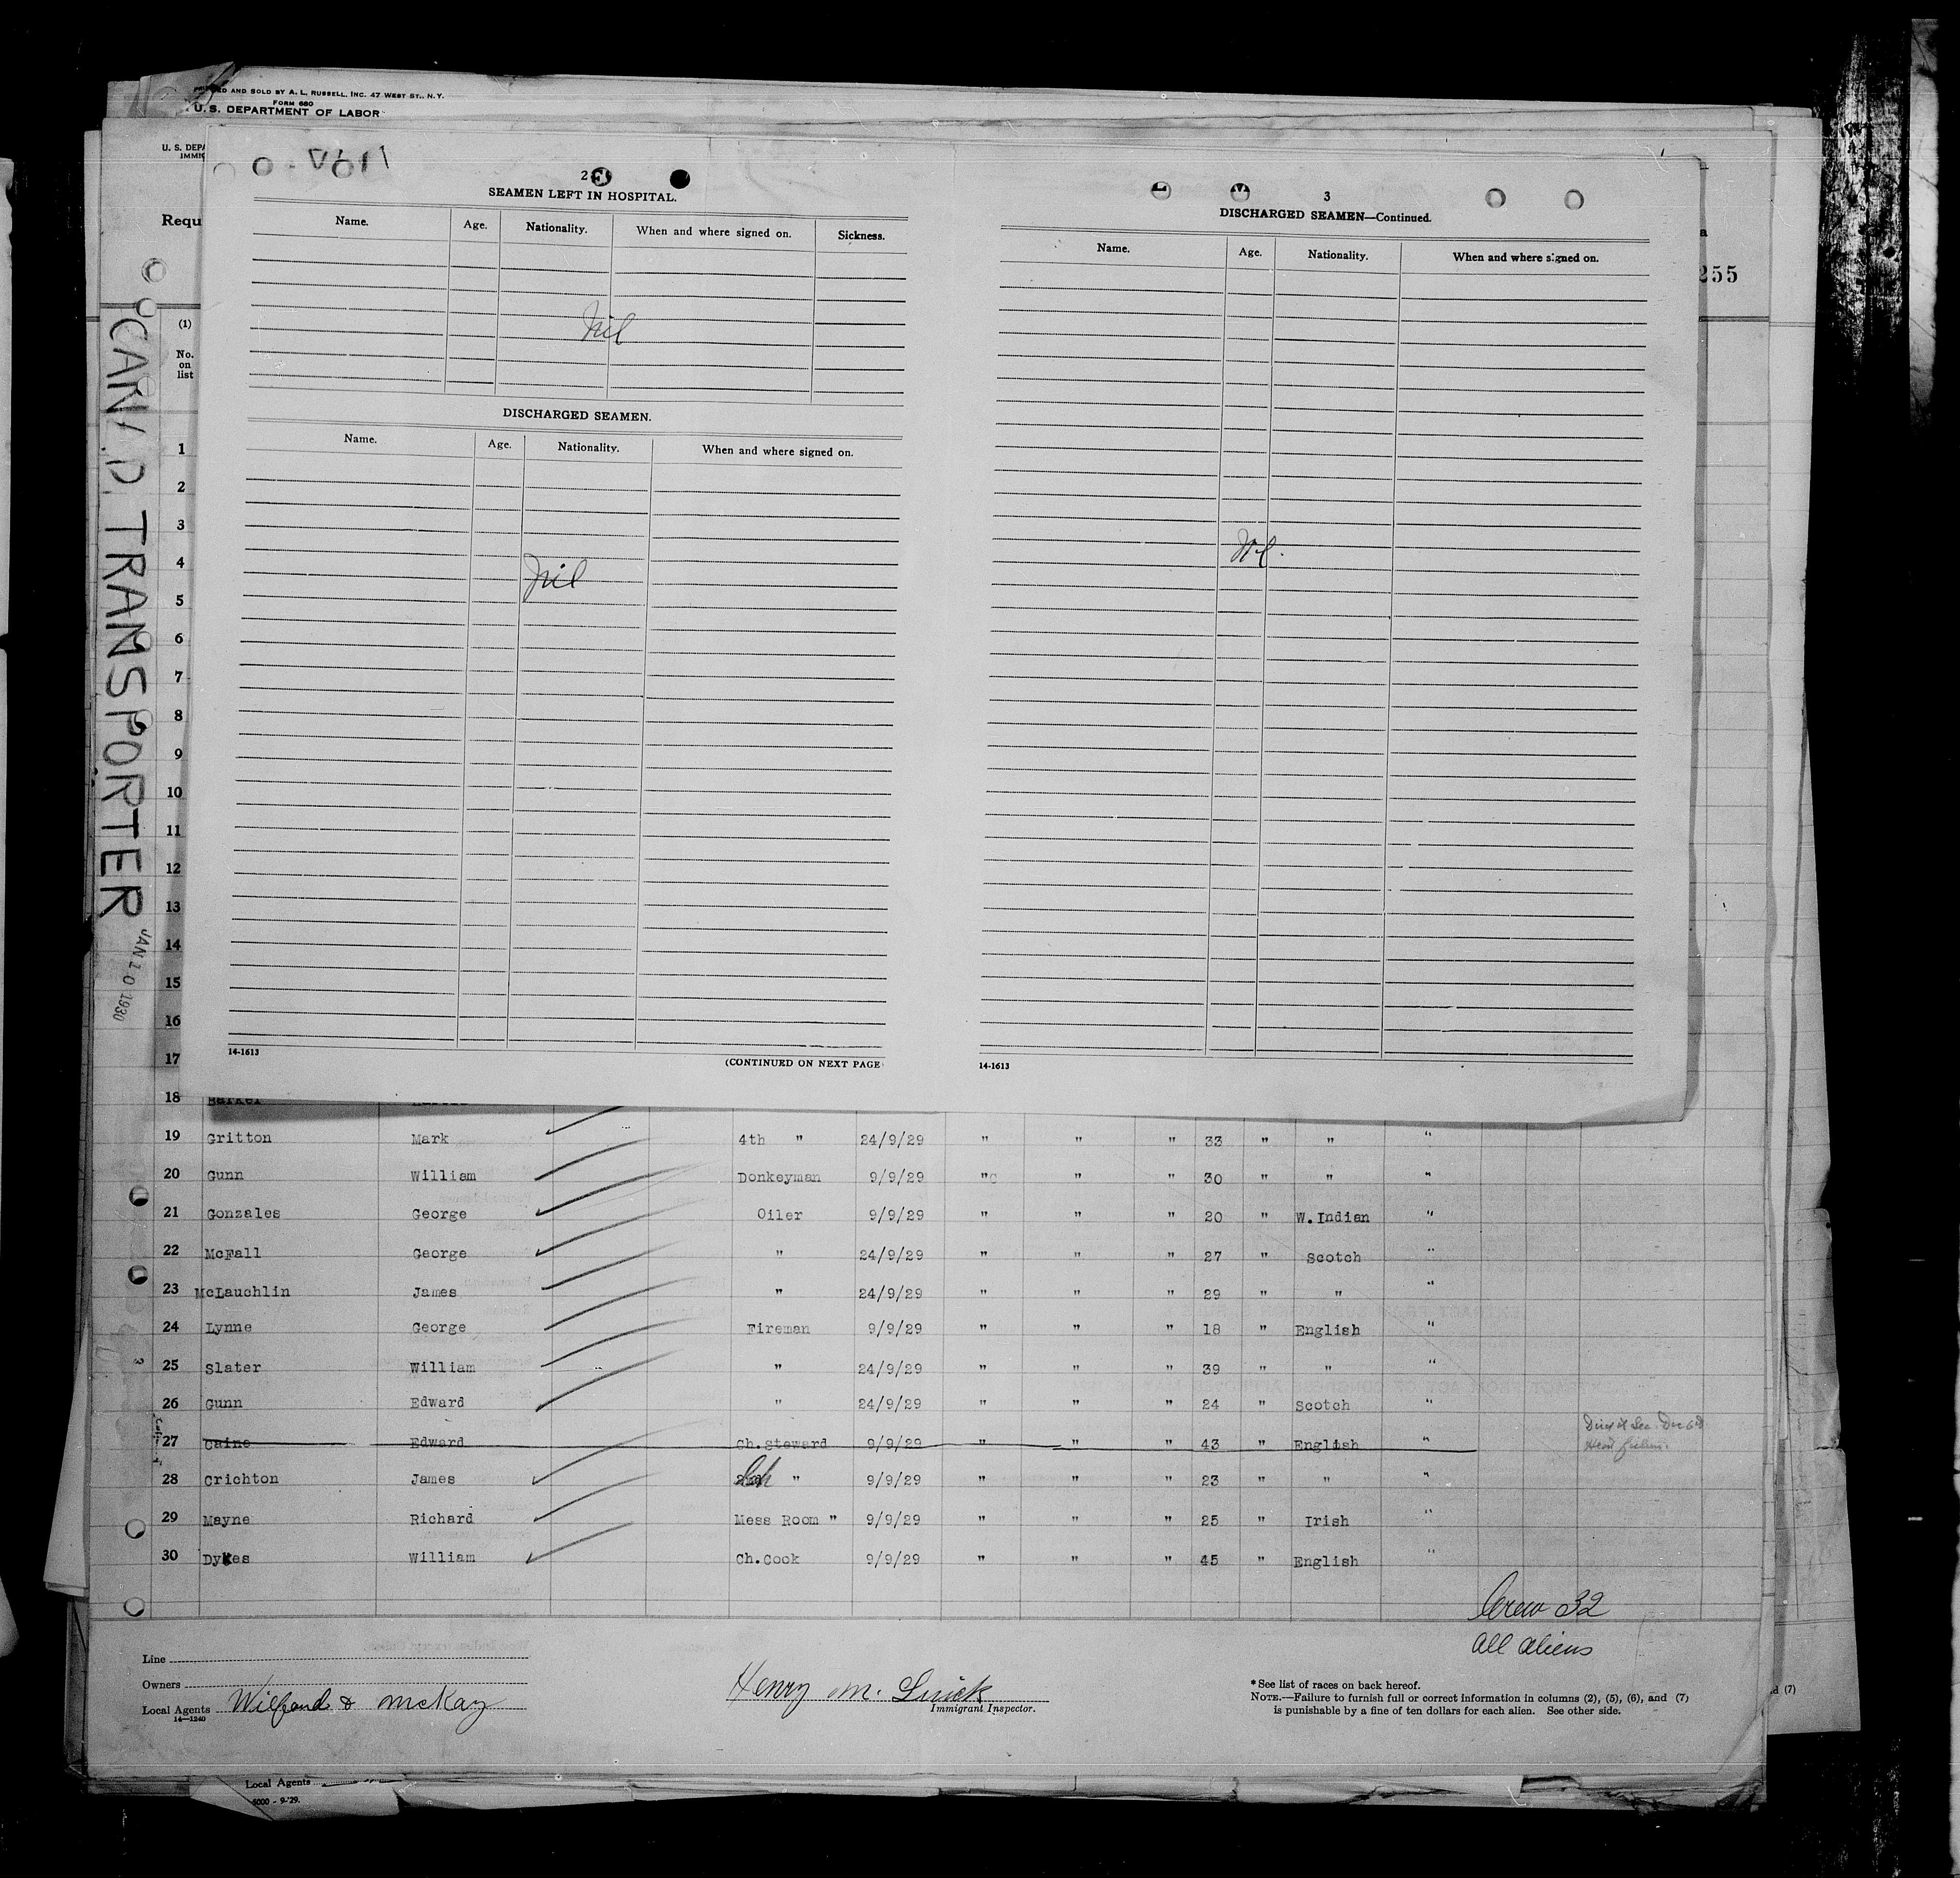 PRINTED AND SOLD BY A. L. RUSSELL, INC. 47 WEST ST., N.Y.
FORM 680
U. S. DEPARTMENT OF LABOR
U. S. DEPA
IMMIG
Requ
(1)
No.
on
list
255
CAN. D. TRANSPORTER
JAN 10 1930
2
SEAMEN LEFT IN HOSPITAL.
Name. Age. Nationality. When and where signed on. Sickness.
Nil
DISCHARGED SEAMEN.
Name. Age. Nationality. When and where signed on.
Nil
14-1613 (CONTINUED ON NEXT PAGE
3
DISCHARGED SEAMEN—Continued.
Name. Age. Nationality. When and where signed on.
Nil.
14-1613
1
2
3
4
5
6
7
8
9
10
11
12
13
14
15
16
17
18 Barker
19 Gritton Mark 4th " 24/9/29 " " " 33 " " "
20 Gunn William Donkeyman 9/9/29 " " " 30 " " "
21 Gonzales George Oiler 9/9/29 " " " 20 " W.Indian "
22 McFall George " 24/9/29 " " " 27 " Scotch "
23 McLauchlin James " 24/9/29 " " " 29 " " "
24 Lynne George Fireman 9/9/29 " " " 18 " English "
25 Slater William " 24/9/29 " " " 39 " " "
26 Gunn Edward " 24/9/29 " " " 24 " Scotch "
27 Caine Edward Ch.Steward 9/9/29 " " " 43 " English " Died at Sea. Dec 6th
Heart failure.
28 Crichton James Ch " 9/9/29 " " " 23 " "
29 Mayne Richard Mess Room " 9/9/29 " " " 25 " Irish "
30 Dykes William Ch.Cook 9/9/29 " " " 45 " English "
Crew 32
all aliens
Line
Owners
Local Agents Wilford & McKay
14—1240
Henry M.
Immigrant Inspector.
* See list of races on back hereof.
NOTE.—Failure to furnish full or correct information in columns (2), (5), (6), and (7)
is punishable by a fine of ten dollars for each alien. See other side.
d (7)
Local Agents
5000 - 9-'29.